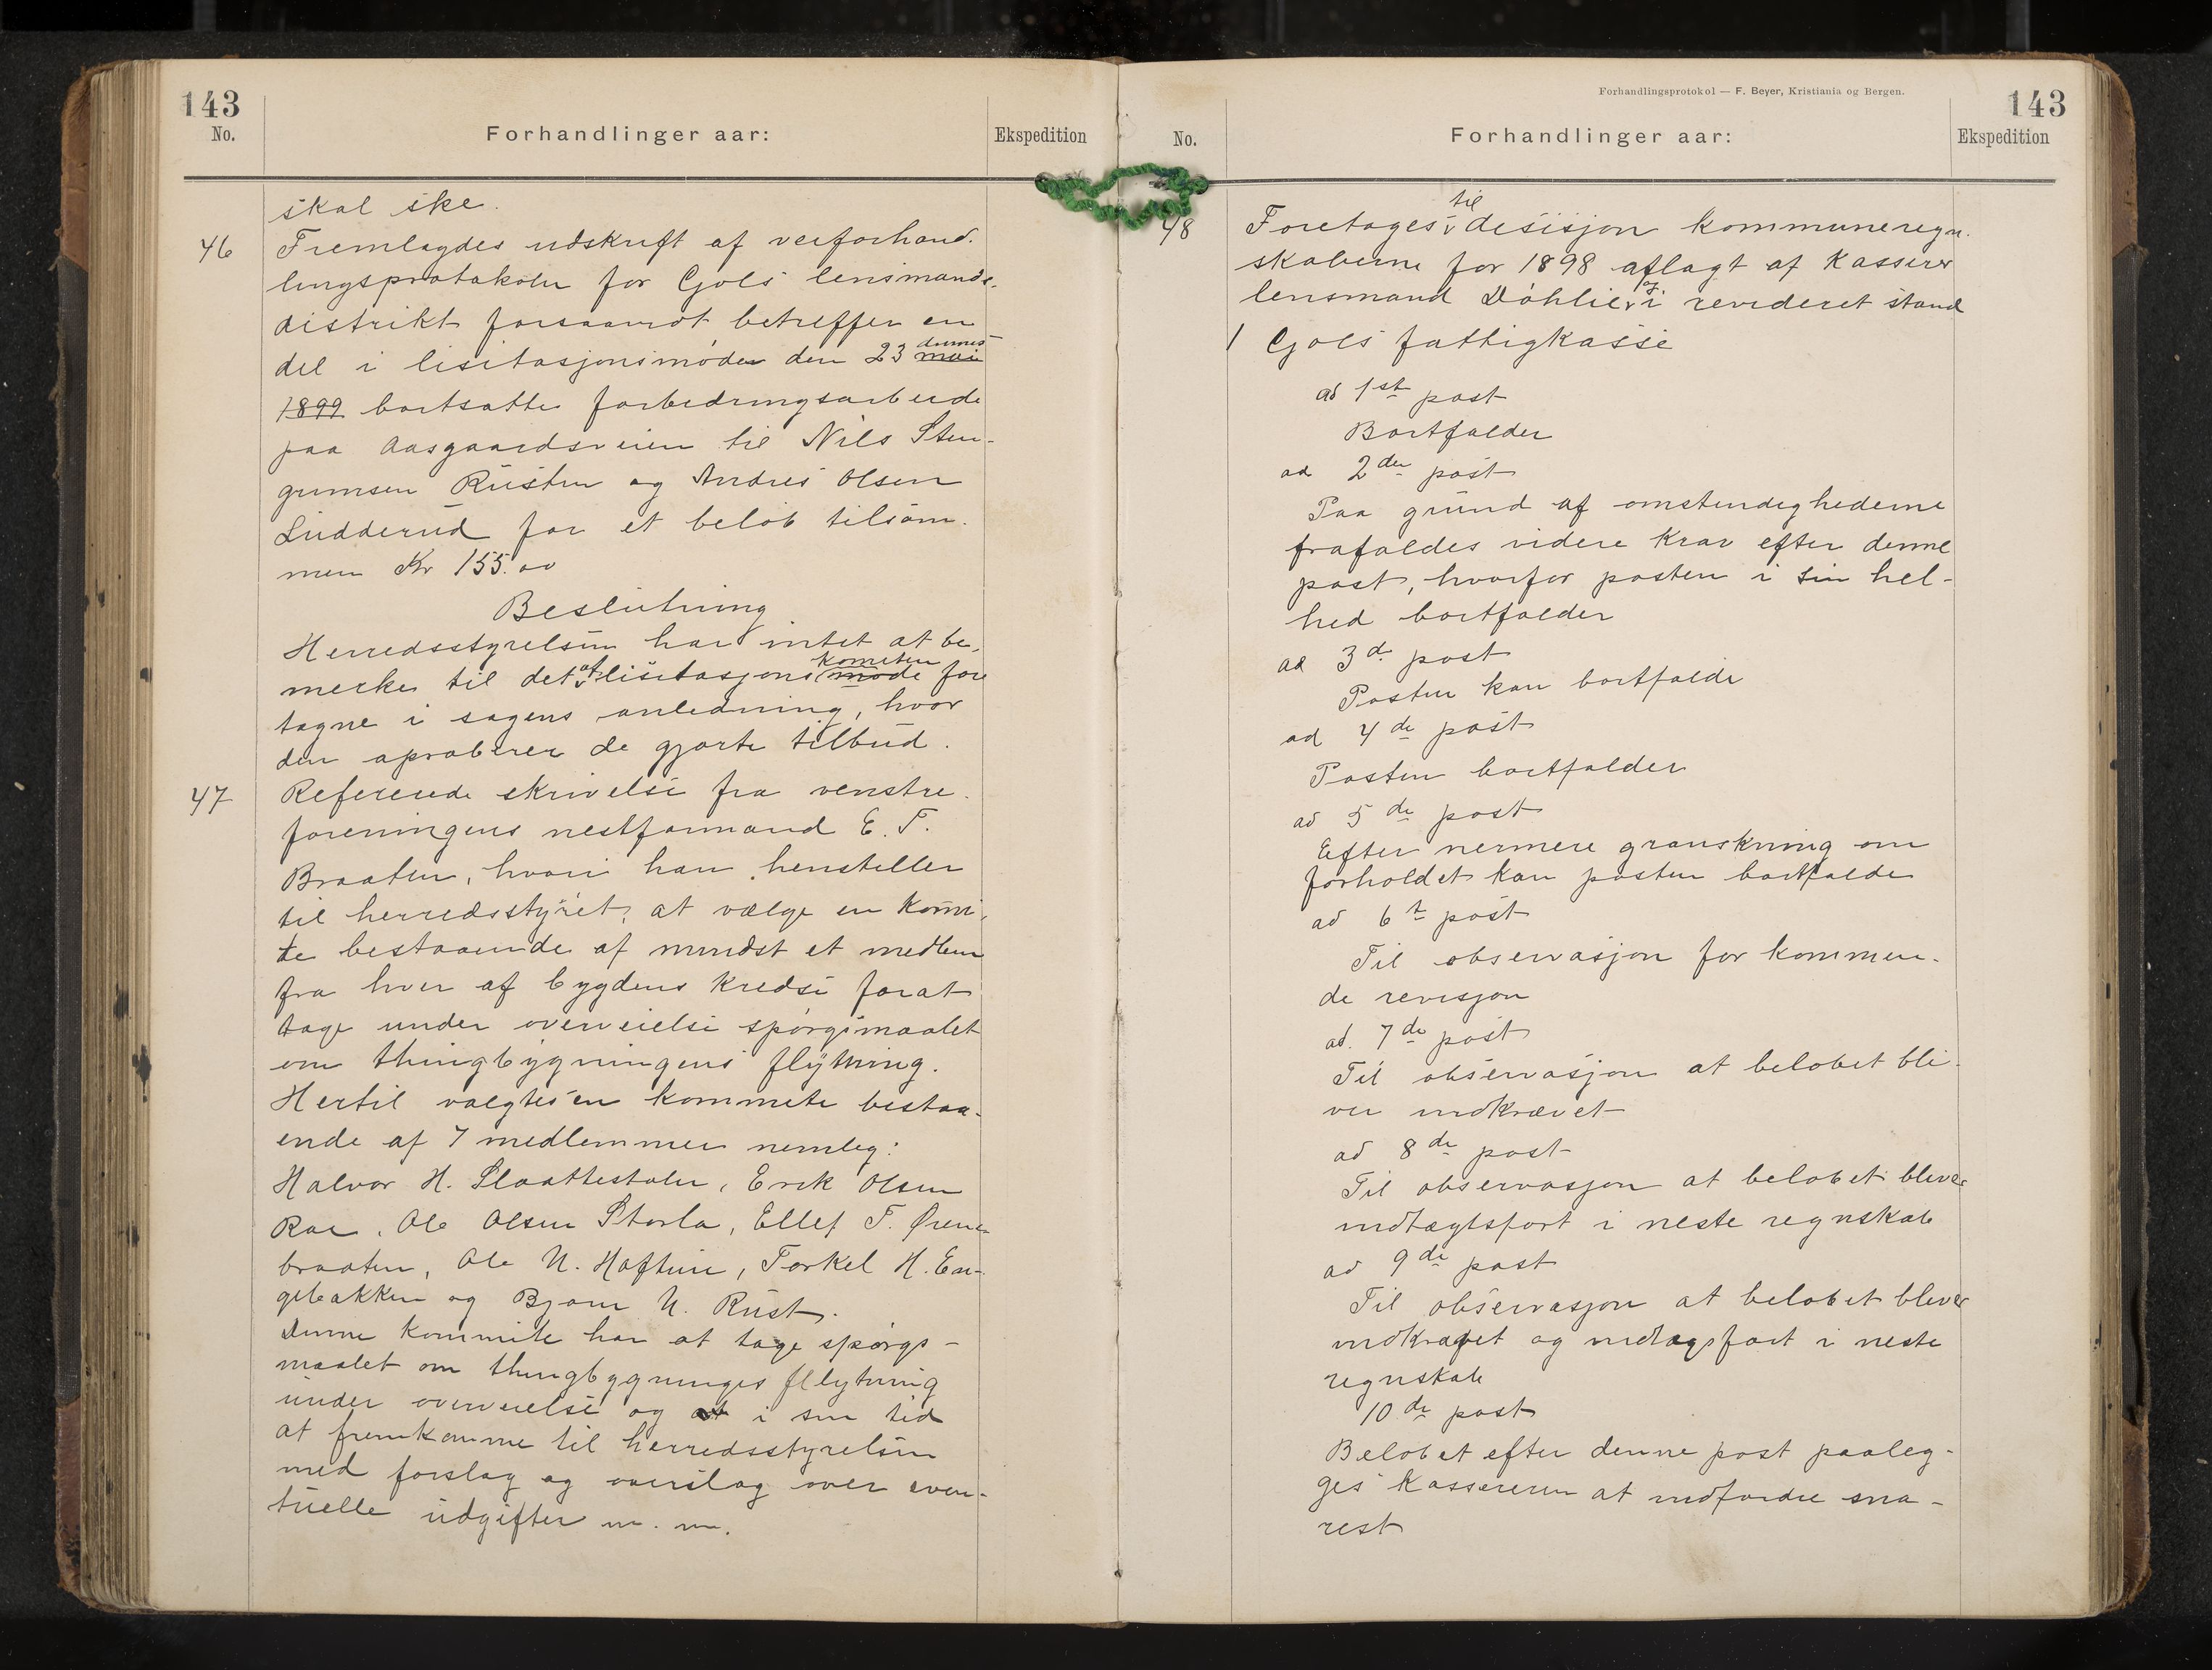 143
No.
Forhandlinger aar:
Ekspedition
skal ske.
46 Fremlagdes udskrift af veiforhand-
lingsprotokolen for Gols lensmands-
distrikt forsaavidt betreffer en
del i lisitasjonsmøder den 23 mai dennes
1899 bortsatte forbedringsarbeide
paa Aasgaardsveien til Nils Sten-
grumsen Rusten og Andres Olsen
Ludderud for et beløb tilsam-
men Kr 155.00
Beslutning
Herredsstyrelsen har intet at be-
merke til det af lisitasjons møde komiteen fore
tagne i sagens anledning, hvor
den aproberer de gjorte tilbud.
47 Refererede skrivelse fra venstre-
foreningens nestformand E. T.
Braaten, hvori han henstiller
til herredsstyret, at vælge en komi-
te bestaaende af mindst et medlem
fra hver af bygdens kredse forat
tage under overveielse spørgsmaalet
om thingbygningens flytning.
Hertil valgtes en kommete bestaa-
ende af 7 medlemmer nemlig:
Halvor H. Slaattestølen, Erik Olsen
Roe, Ole Olsen Storla, Ellef T. Ørene-
braaten, Ole N. Haftun, Torkel H. En-
gebakken og Bjørn N. Rust.
Denne kommite har at tage spørgs-
maalet om thingbygninges fllytning
under overveielse og at i sin tid
at fremkomme til herredsstyrelsen
med forslag og overslag over even-
tuelle udgifter m. m.
Forhandlingsprotokol — F. Beyer, Kristiania og Bergen.
143
No.
Forhandlinger aar:
Ekspedition
48 Foretages til desisjon kommuneregn-
skaberne for 1898 aflagt af kasserer
lensmand Døhlie, og i revideret stand
1 Gols fattigkasse
ad 1st post
Bortfalder
ad 2den post
Paa grund af omstendighederne
frafaldes videre krav efter denne
post, hvorfor posten i sin hel-
hed bortfalder
ad 3d. post
Posten kan bortfalde
ad 4de post
Posten bortfalder
ad 5de post
Efter nermere granskning om
forholdet kan posten bortfalde
ad 6t post
Til observasjon for kommen-
de revisjon
ad. 7de post
Til observasjon at beløbet bli-
ver indkrævet
ad 8de post
Til observasjon at beløbet bliver
indtægtsført i neste regnskab
ad 9de post
Til observasjon at beløbet bliver
indkrævet og indtægsført i neste
regnskab
10de post
Beløbet efter denne post paaleg-
ges kassereren at indfordre sna-
rest